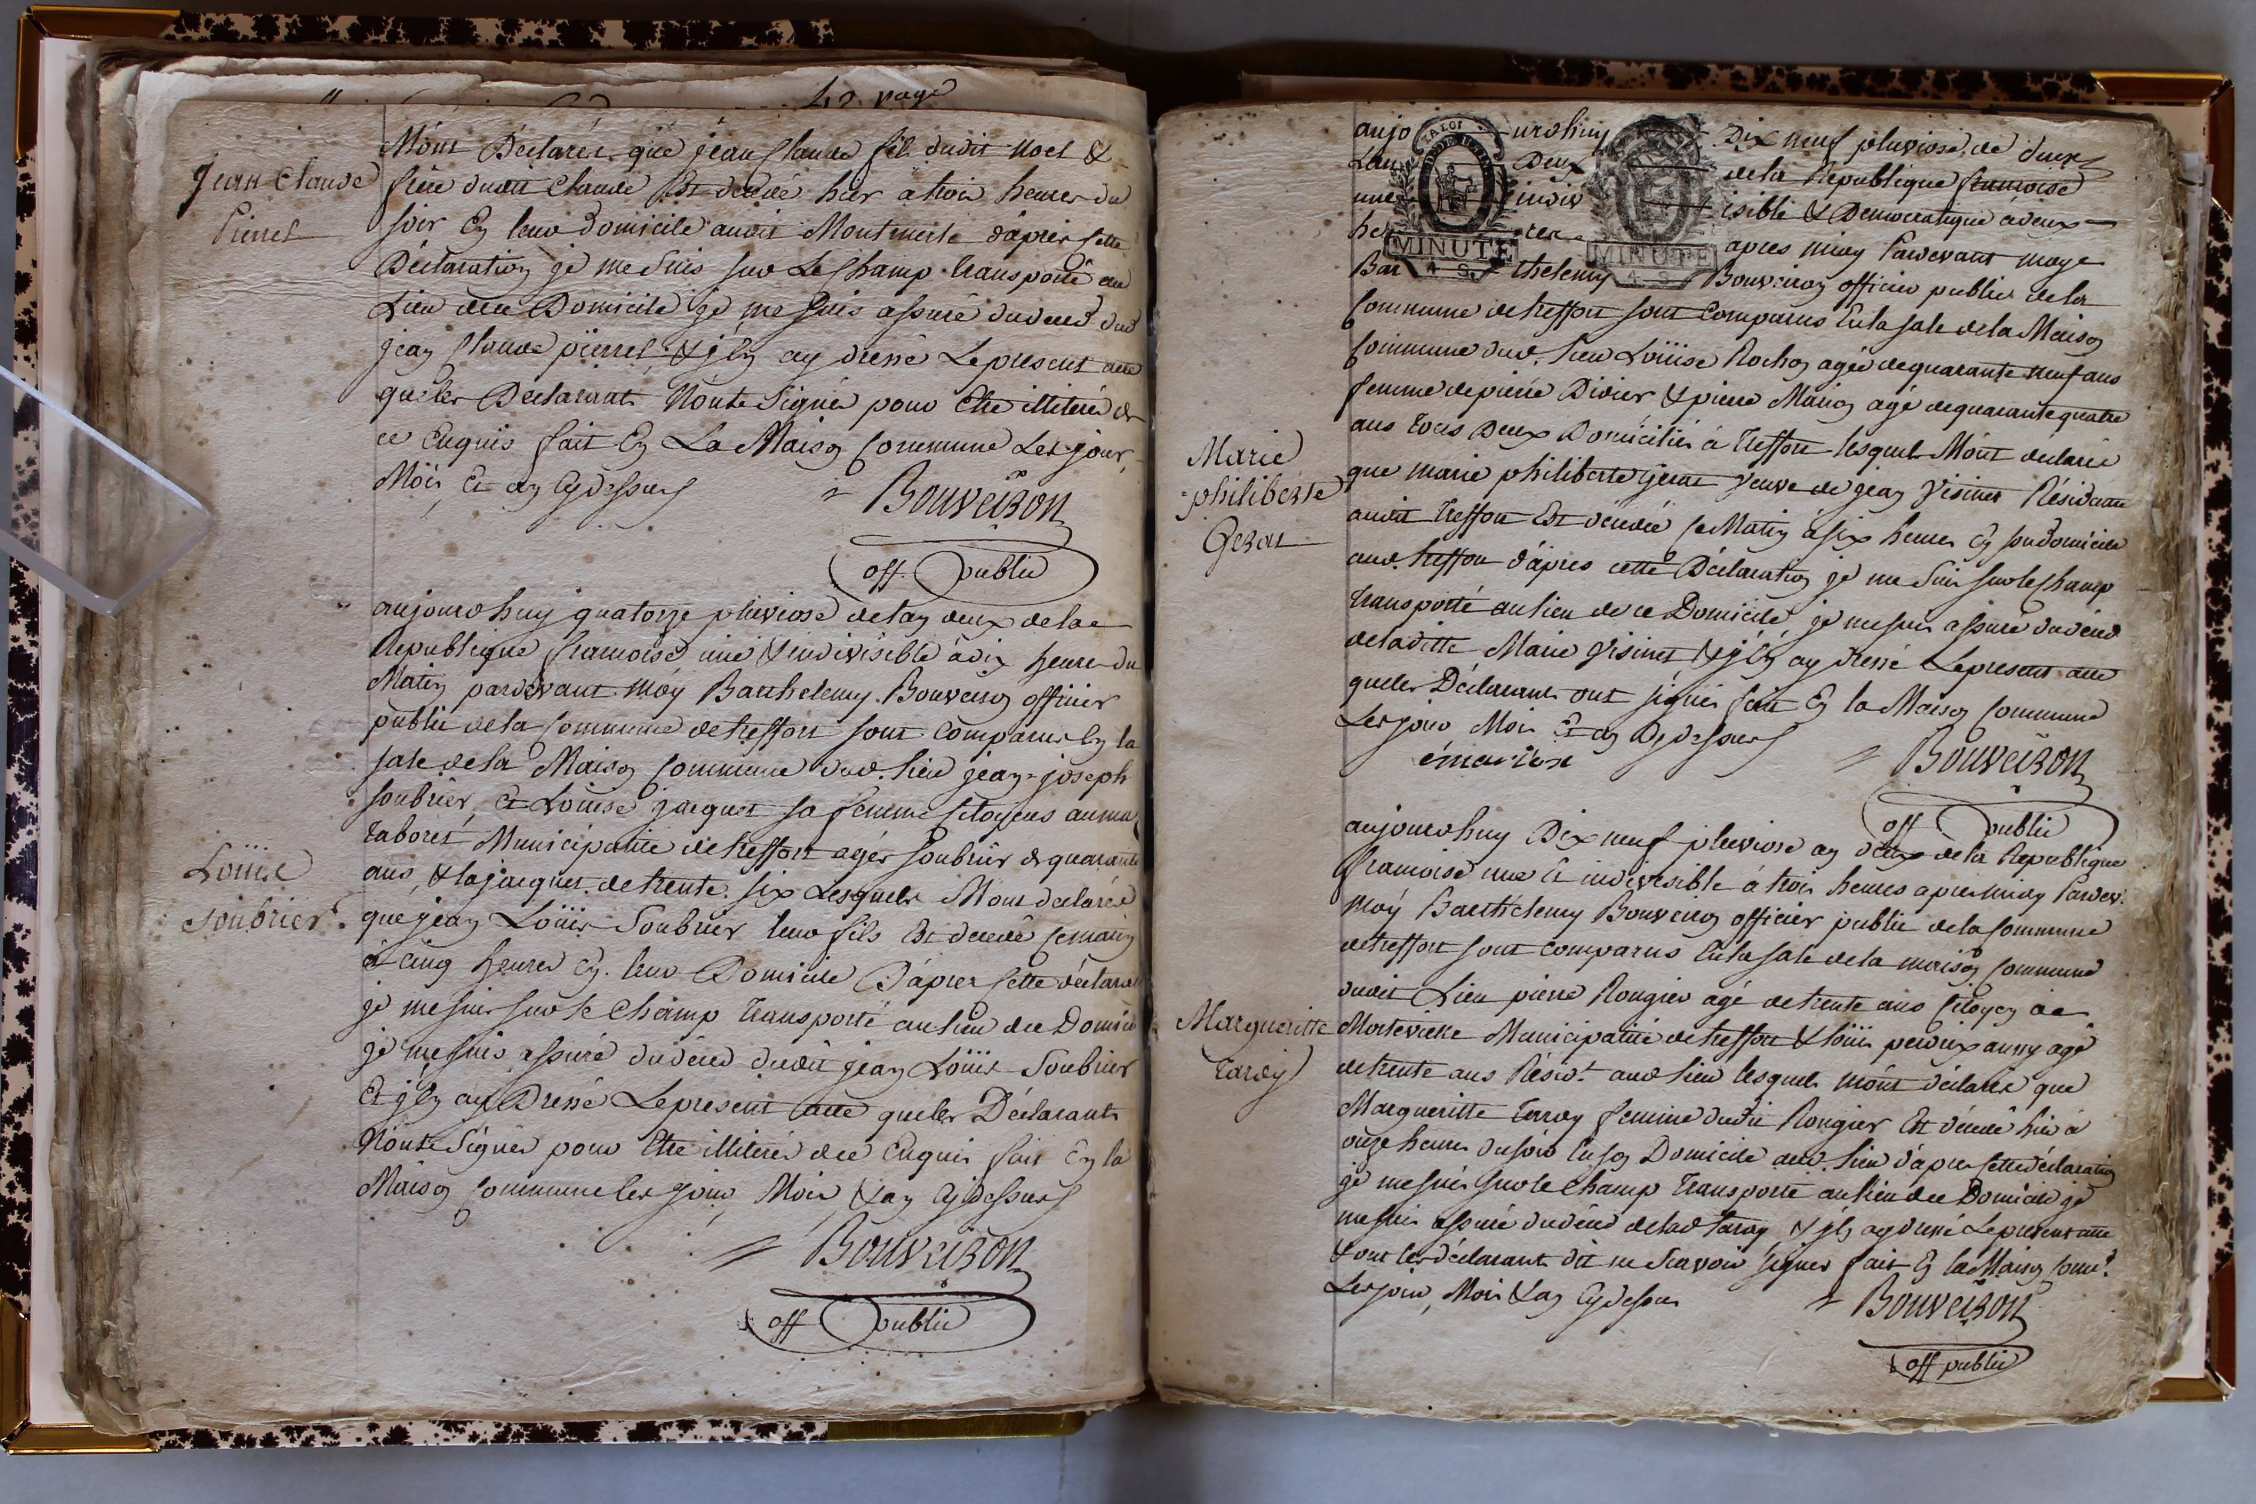 42 page
Jean Claude
Pierrel
M'ont Déclarés que jean Claude fils dudit Noel &
frère dudit Claude Est décédé hier a trois heures du
soir En leur Domicile audit Montmerle d'après cette
Déclaration je me suis sur Le Champ transporté au
Lieu de ce Domicile je me suis assuré du décéd dud
jean Claude pierrel & j'en ay dressé Le present acte
que les Déclarants N'ont Signés pour Etre illitérés de
ce Enquis fait En La Maison Commune Les jour,
Mois Et an Cydessus
Bouveiron
off. public
aujourdhuy quatorze pluviose de lan deux de la
Republique francoise une & indivisible à dix heures du
Matin pardevant moy Barthelemy Bouveiron officier
public de la Commune de treffort sont Comparus En la
sale de la Maison Commune dud. lieu jean-joseph
soubrier, Et Louise jacquet sa femme Citoyens au
taboret Municipalité de treffort agés soubrier de quarante
ans, & la jacquet de trente six Lesquels M'ont declarés
Louïse
Soubrier
que jean Louïs Soubrier leur fils Est décédé ce matin
à Cinq heures En leur Domicile D'après cette déclara
je me suis sur le Champ transporté au lieu de ce Domicil
je me suis assuré du déced dudit jean Louïs Soubrier
Et j'En ay Dressé Le present acte que les Déclarants
N'ont Signés pour Etre illitérés de ce Enquis fait En la
Maison Commune les jour, Mois & an Cydessus
Bouveiron
off public
aujourdhuy Dix neuf pluviose de
Lan Deux de la Republique francoise
une indivisible & Democratique à deux
heures apres midy Pardevant moy
Barthelemy Bouveiron officier public de la
Commune de treffort sont Comparus En la sale de la Maison
Commune dud. lieu Louïse Rochon agée de quarante neuf ans
femme de pierre Didier & pierre Marion agé de quarante quatre
ans tous Deux Domiciliés à treffort lesquels M'ont déclarés
Marie
philiberte
Gerat
que marie philiberte gerat veuve de jean Visinet Résidante
audit treffort Est décédée ce Matin à six heures En son Domicile
aud. treffort d'après cette Déclaration je me suis sur le Champ
transporté au lieu de ce Domicile je me suis assuré du décéd
de laditte Marie Visinet & j'En ay dressé Le present acte
que les Déclarants ont signés fait En la Maison Commune
Les jour Mois Et an Cydessus
Bouveiron
off public
aujourdhuy Dix neuf pluviose an deux de la Republique
francoise une & indivisible à trois heures apres midy Pardev.
Moy Barthelemy Bouveiron officier public de la Commune
de treffort sont Comparus En la sale de la maison Commune
dudit Lieu pierre Rougier agé de trente ans Citoyen de
Margueritte
tardy
Municipalité de treffort & loüis peroux aussy agé
de trente ans Résidt aud lieu lesquels m'ont déclarés que
Margueritte tardy femme dudit Rougier Est décédé hier à
onze heures du soir En son Domicile aud. lieu d'après cette déclaration
je me suis sur le Champ transporté au lieu de ce Domicile je
me suis assuré du décéd de lad tardy & j'En ay dressé Le present acte
& ont les déclarants dit ne Scavoir signer fait En la Maison Comne.
Les jour, Mois & an Cydessus
Bouveiron
off public
LA LOI
MINUTE
4 S.
MINUTE
4 S.